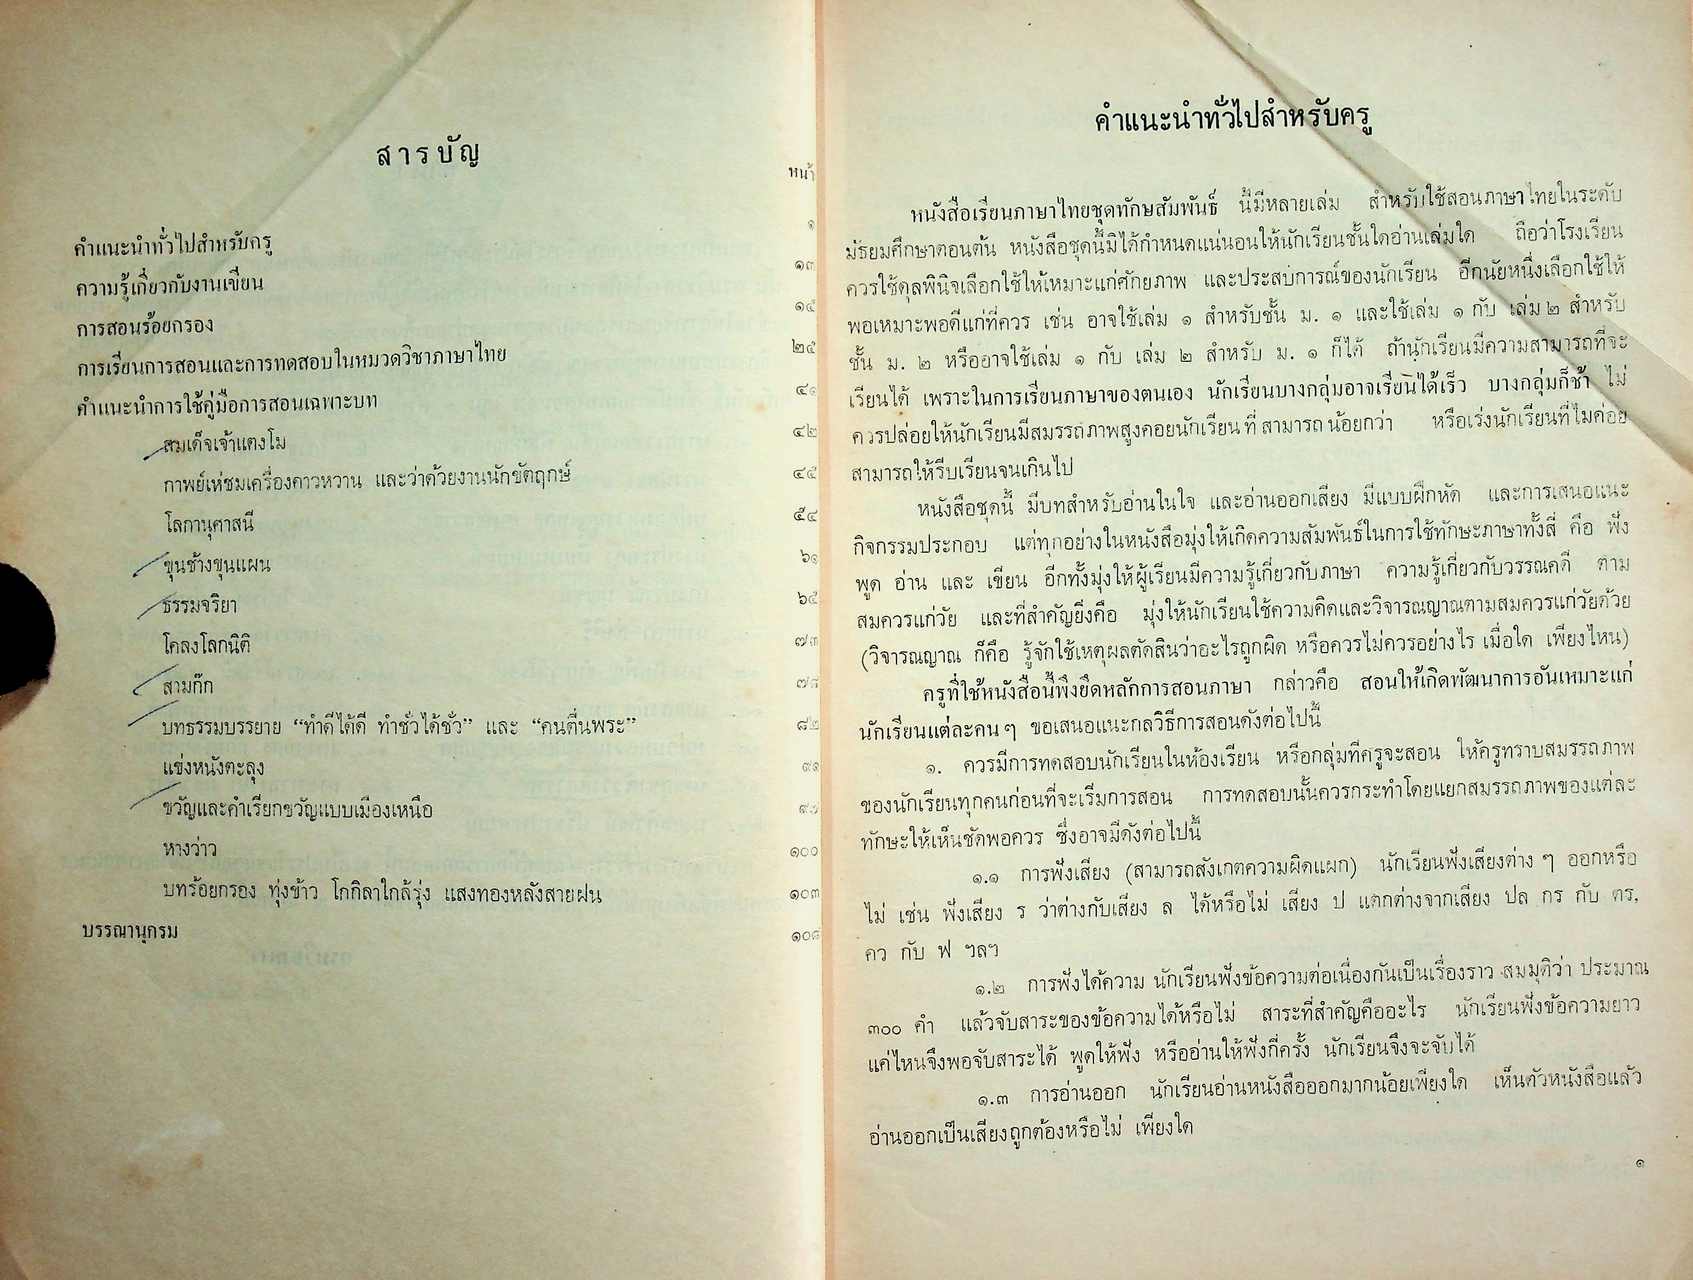 สารบัญ
หน้า
คำแนะนำทั่วไปสำหรับครู ๑
ความรู้เกี่ยวกับงานเขียน ๑๓
การสอนร้อยกรอง ๑๕
การเรียนการสอนและการทดสอบในหมวดวิชาภาษาไทย ๒๕
คำแนะนำการใช้คู่มือการสอนเฉพาะบท ๔๑
สมเด็จเจ้าแตงโม ๔๒
กาพย์เห่ชมเครื่องคาวหวาน และว่าด้วยงานนักขัตฤกษ์ ๔๕
โลกานุศาสนี ๕๔
ขุนช้างขุนแผน ๖๑
ธรรมจริยา ๖๕
โคลงโลกนิติ ๗๓
สามก๊ก ๗๘
บทธรรมบรรยาย “ทำดีได้ดี ทำชั่วได้ชั่ว” และ “คนตื่นพระ” ๘๒
แข่งหนังตะลุง ๙๑
ขวัญและคำเรียกขวัญแบบเมืองเหนือ
หางว่าว ๑๐๐
บทร้อยกรอง ทุ่งข้าว โกกิลาใกล้รุ่ง แสงทองหลังสายฝน ๑๐๓
บรรณานุกรม ๑๐๘
คำแนะนำทั่วไปสำหรับครู
หนังสือเรียนภาษาไทยชุดทักษสัมพันธ์ นี้มีหลายเล่ม สำหรับใช้สอนภาษาไทยในระดับ
มัธยมศึกษาตอนต้น หนังสือชุดนี้มิได้กำหนดแน่นอนให้นักเรียนชั้นใดอ่านเล่มใด ถือว่าโรงเรียน
ควรใช้ดุลพินิจเลือกใช้ให้เหมาะแก่ศักยภาพ และประสบการณ์ของนักเรียน อีกนัยหนึ่งเลือกใช้ให้
พอเหมาะพอดีแก่ที่ควร เช่น อาจใช้เล่ม ๑ สำหรับชั้น ม. ๑ และใช้เล่ม ๑ กับ เล่ม ๒ สำหรับ
ชั้น ม. ๒ หรืออาจใช้เล่ม ๑ กับ เล่ม ๒ สำหรับ ม. ๑ ก็ได้ ถ้านักเรียนมีความสามารถที่จะ
เรียนได้ เพราะในการเรียนภาษาของตนเอง นักเรียนบางกลุ่มอาจเรียนได้เร็ว บางกลุ่มก็ช้า ไม่
ควรปล่อยให้นักเรียนมีสมรรถภาพสูงคอยนักเรียนที่สามารถน้อยกว่า หรือเร่งนักเรียนที่ไม่ค่อย
สามารถให้รีบเรียนจนเกินไป
หนังสือชุดนี้ มีบทสำหรับอ่านในใจ และอ่านออกเสียง มีแบบฝึกหัด และการเสนอแนะ
กิจกรรมประกอบ แต่ทุกอย่างในหนังสือมุ่งให้เกิดความสัมพันธ์ในการใช้ทักษะภาษาทั้งสี่ คือ ฟัง
พูด อ่าน และ เขียน อีกทั้งมุ่งให้ผู้เรียนมีความรู้เกี่ยวกับภาษา ความรู้เกี่ยวกับวรรณคดี ตาม
สมควรแก่วัย และที่สำคัญยิ่งคือ มุ่งให้นักเรียนใช้ความคิดและวิจารณญาณตามสมควรแก่วัยด้วย
(วิจารณญาณ ก็คือ รู้จักใช้เหตุผลตัดสินว่าอะไรถูกผิด หรือควรไม่ควรอย่างไร เมื่อใด เพียงไหน)
ครูที่ใช้หนังสือนี้พึงยึดหลักการสอนภาษา กล่าวคือ สอนให้เกิดพัฒนาการอันเหมาะแก่
นักเรียนแต่ละคนๆ ขอเสนอแนะกลวิธีการสอนดังต่อไปนี้
๑. ควรมีการทดสอบนักเรียนในห้องเรียน หรือกลุ่มที่ครูจะสอน ให้ครูทราบสมรรถภาพ
ของนักเรียนทุกคนก่อนที่จะเริ่มการสอน การทดสอบนั้นควรกระทำโดยแยกสมรรถภาพของแต่ละ
ทักษะให้เห็นชัดพอควร ซึ่งอาจมีดังต่อไปนี้
๑.๑ การฟังเสียง (สามารถสังเกตความผิดแผก) นักเรียนฟังเสียงต่าง ๆ ออกหรือ
ไม่ เช่น ฟังเสียง ร ว่าต่างกับเสียง ล ได้หรือไม่ เสียง ป แตกต่างจากเสียง ปล กร กับ ตร,
คว กับ ฟ ฯลฯ
๑.๒ การฟังได้ความ นักเรียนฟังข้อความต่อเนื่องกันเป็นเรื่องราว สมมุติว่า ประมาณ
๓๐๐ คำ แล้วจับสาระของข้อความได้หรือไม่ สาระที่สำคัญคืออะไร นักเรียนฟังข้อความยาว
แค่ไหนจึงพอจับสาระได้ พูดให้ฟัง หรืออ่านให้ฟังกี่ครั้ง นักเรียนจึงจะจับได้
๑.๓ การอ่านออก นักเรียนอ่านหนังสือออกมากน้อยเพียงใด เห็นตัวหนังสือแล้ว
อ่านออกเป็นเสียงถูกต้องหรือไม่ เพียงใด
๑